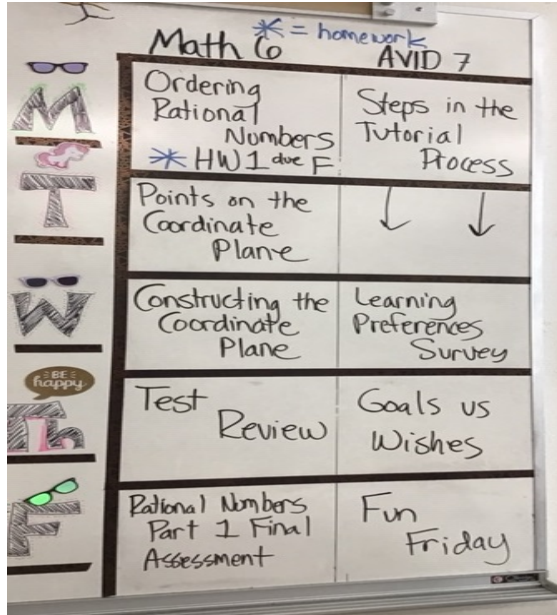 * = homework
Math 6 AVID 7
M
Ordering
Rational
Numbers
* HW1 due F
Steps in the
Tutorial
Process
T
Points on the
Coordinate
Plane
W
Constructing the
Coordinate
Plane
Learning
Preferences
Survey
BE
happy
Th
Test
Review
Goals vs
Wishes
F
Rational Numbers
Part 1 Final
Assessment
Fun
Friday